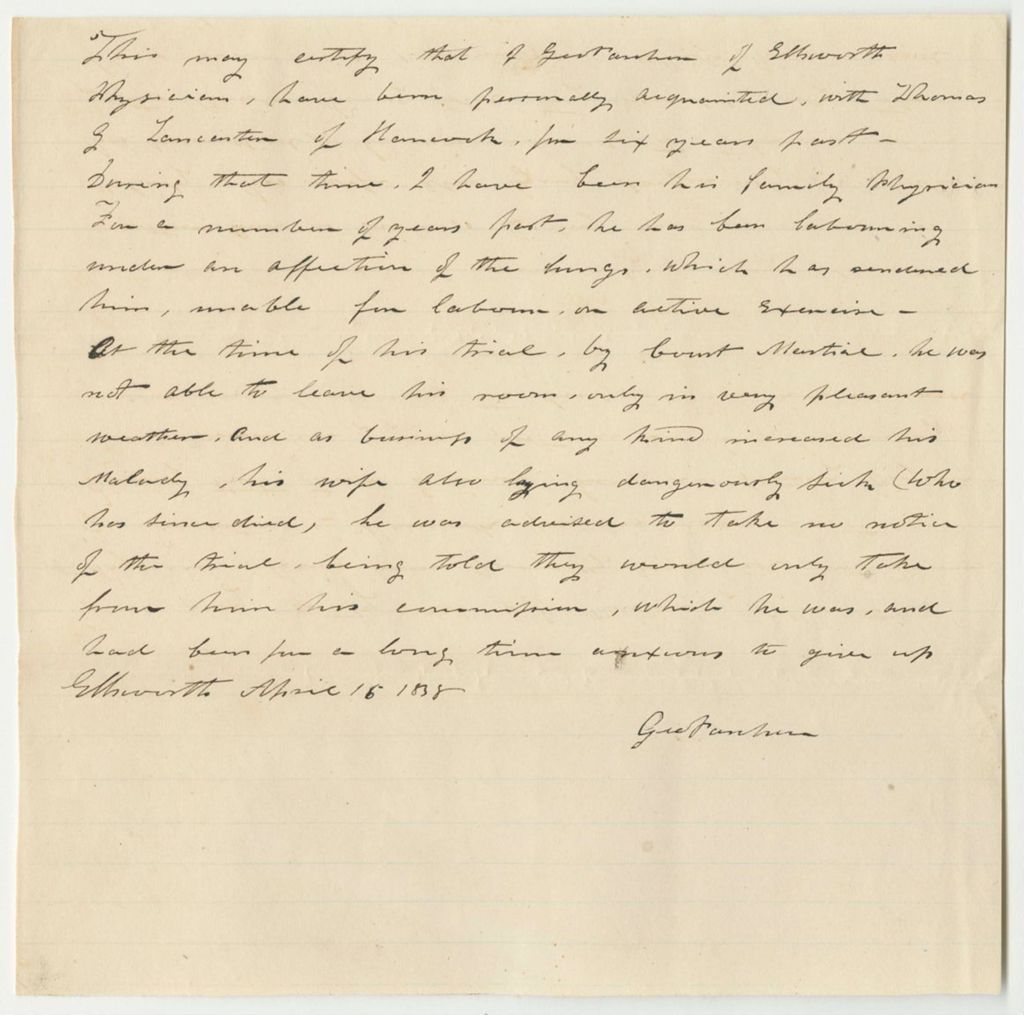 This may certify that I Geo Parcher of Ellsworth
Physician, have been personally acquainted, with Thomas
G Lancaster of Hancock, for six years past –
During that time, I have been his family Physician
For a number of years past, he has been labouring
under an affection of the lungs, which has rendered
him, unable for labour, or active Exercise –
At the time of his trial, by Court Martial, he was
not able to leave his room, only in very pleasant
weather, And as business of any kind increased his
Malady, his wife also lying dangerously sick (who
has since died, he was advised to take no notice
of the trial, being told they would only take
from him his commission, which he was, and
had been for a long time anxious to give up
Ellsworth April 16 1838
Geo Parcher